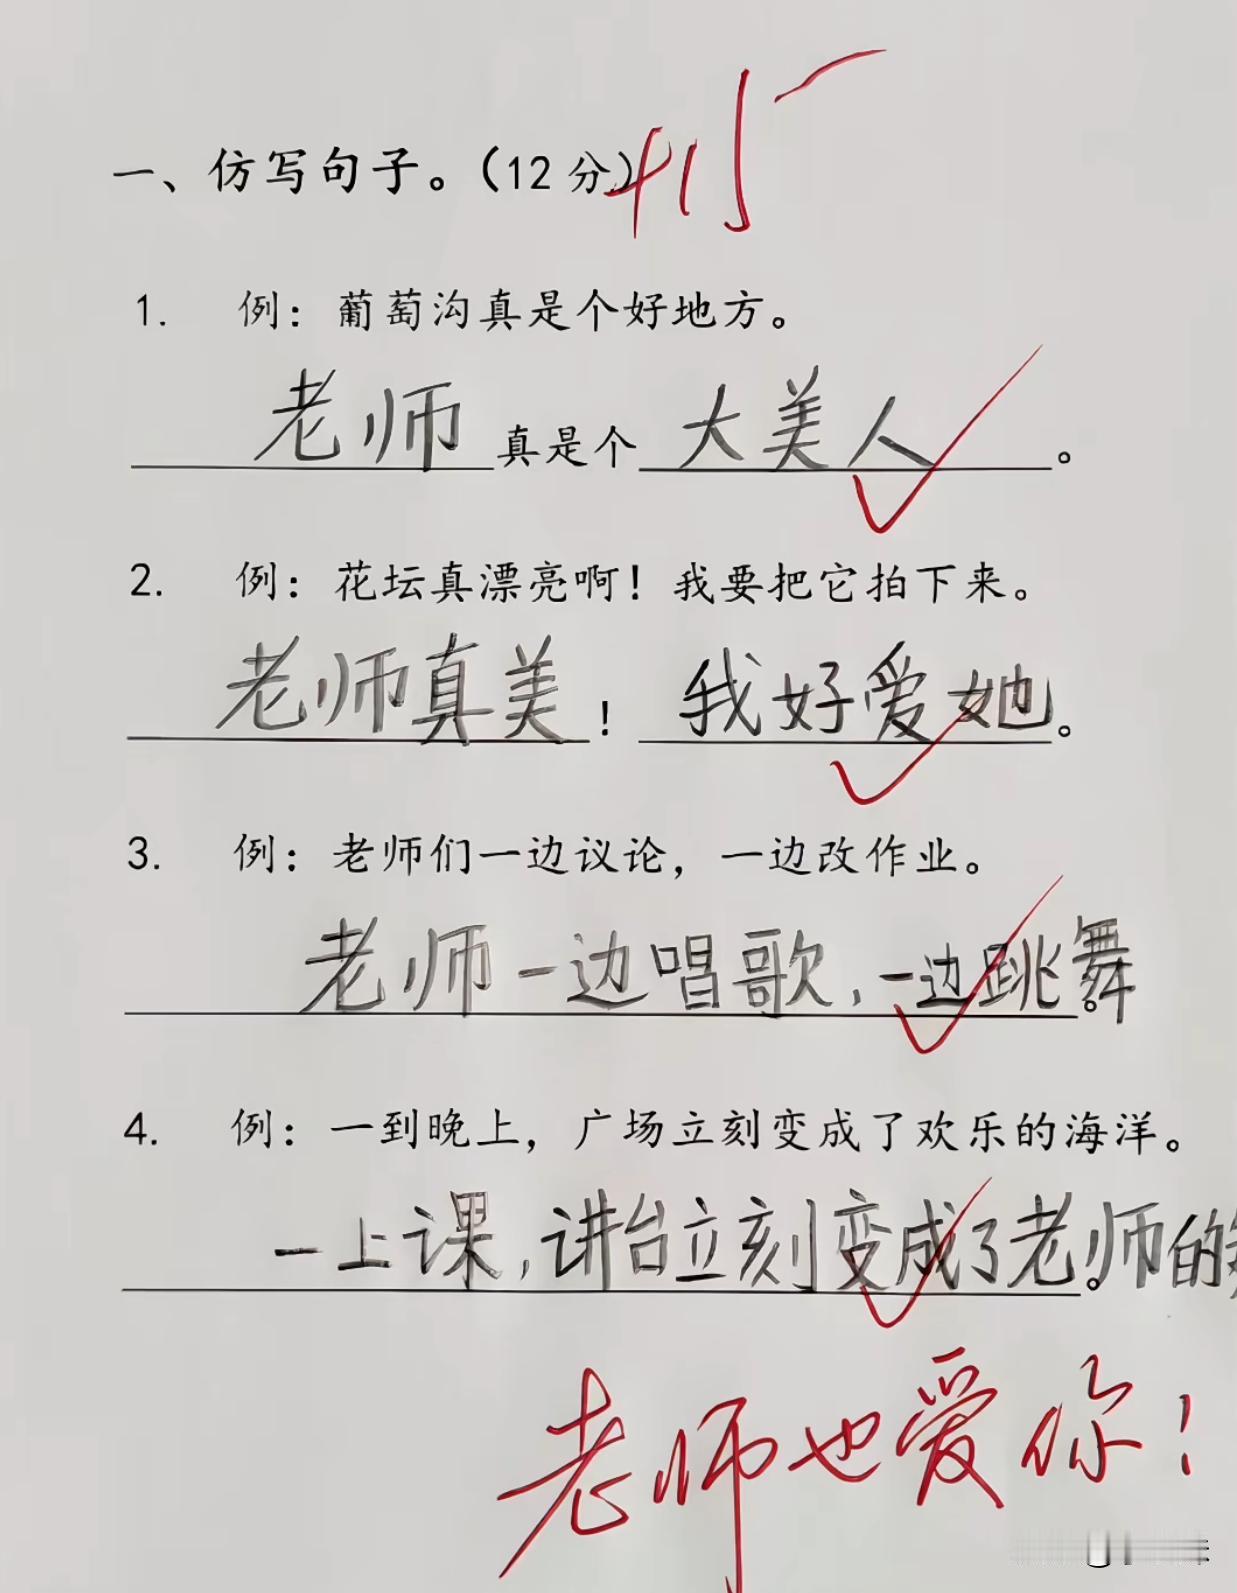 一、仿写句子。(12分) +15
1. 例：葡萄沟真是个好地方。
老师真是个大美人。
2. 例：花坛真漂亮啊！我要把它拍下来。
老师真美！我好爱她。
3. 例：老师们一边议论，一边改作业。
老师一边唱歌，一边跳舞。
4. 例：一到晚上，广场立刻变成了欢乐的海洋。
一上课，讲台立刻变成了老师的。
老师也爱你！